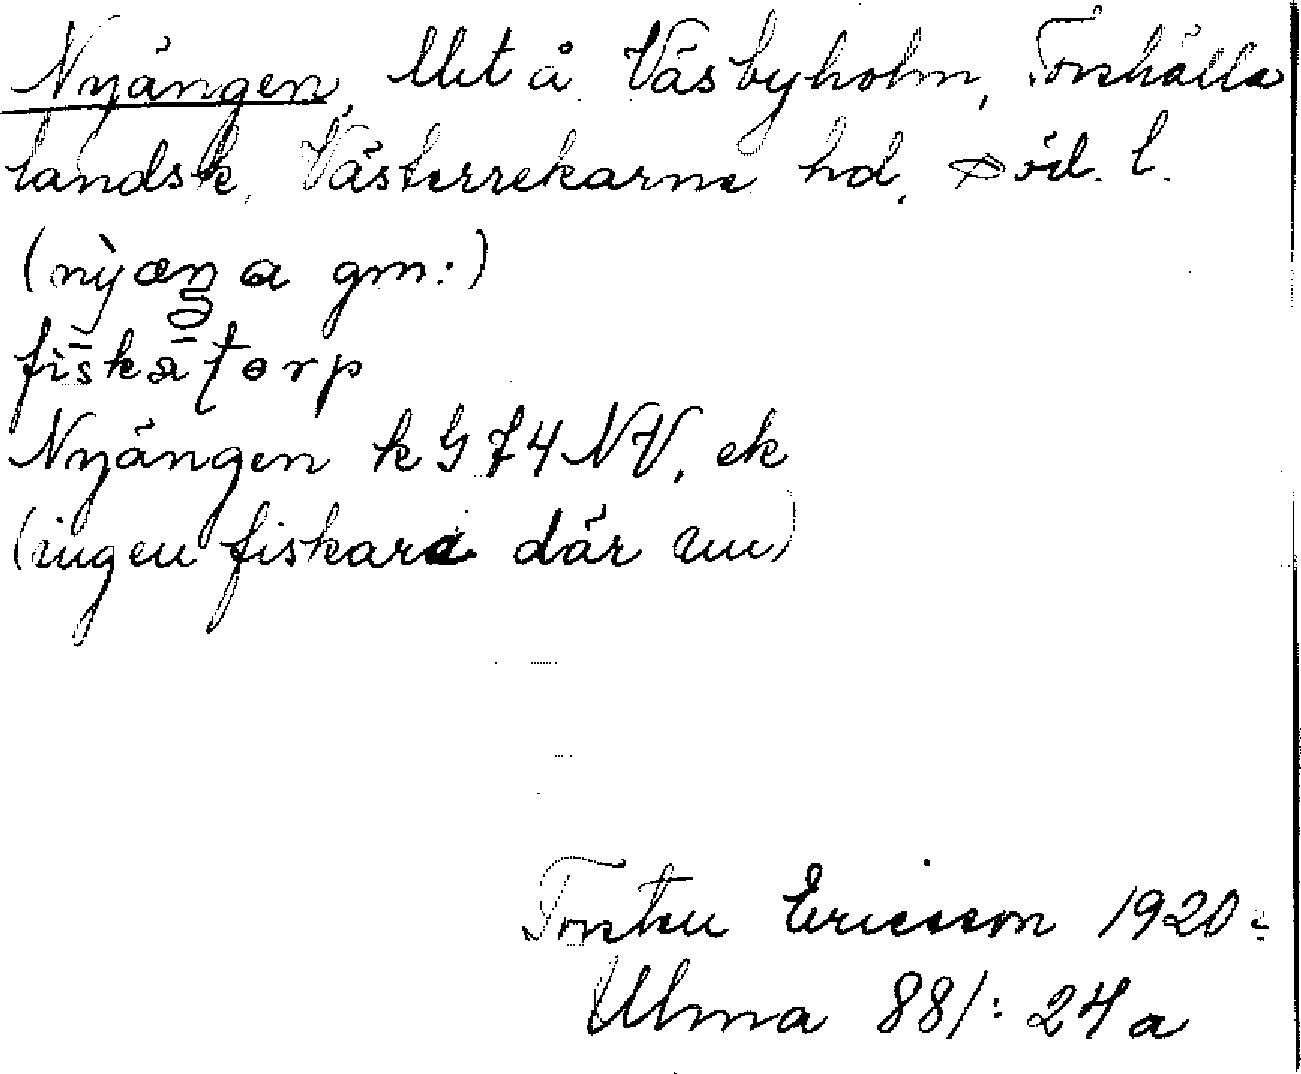 Nyängen, Utet å Väsbyholm, Torshälla
landsk, Västerrekarne hd. Söd. l.
(nỳæŋa gm:)
fiskatorp
Nyängen k G 74 NV, ek
(ingen fiskare där nu)
Torsten Ericsson 1920
Ulma 88/: 24 a